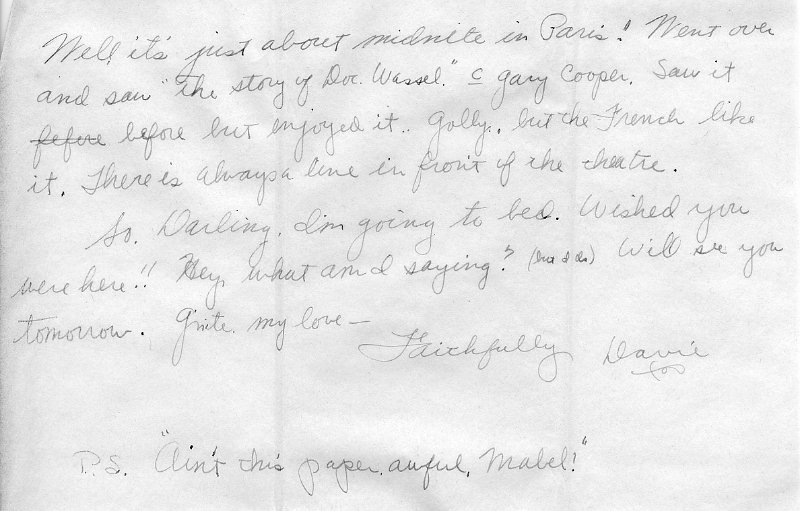 Well it's just about midnite in Paris! Went over
and saw "the story of Doc. Wassel." c Gary Cooper. Saw it
before before but enjoyed it.. Golly, but the French like
it. There is always a line in front of the theatre.
So, Darling, I'm going to bed. Wished you
were here!! Hey, what am I saying? (but I do) Will see you
tomorrow. G'nite my love —
Faithfully Davie
xoo
P.S. "Ain't this paper awful, Mabel!"